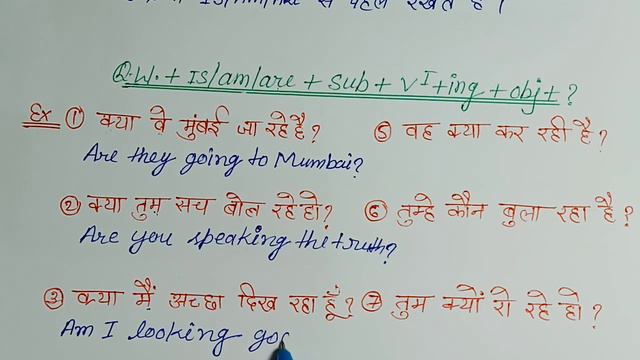 से पहले रखते हैं।
Q.W. + Is/am/are + sub + V¹+ing + obj + ?
Ex ① क्या वे मुंबई जा रहे है?
Are they going to Mumbai?
② क्या तुम सच बोल रहे हो?
Are you speaking the truth?
③ क्या मैं अच्छा दिख रहा हूँ?
Am I looking go
⑤ वह क्या कर रही है?
⑥ तुम्हे कौन बुला रहा है?
⑦ तुम क्यों रो रहे हो?